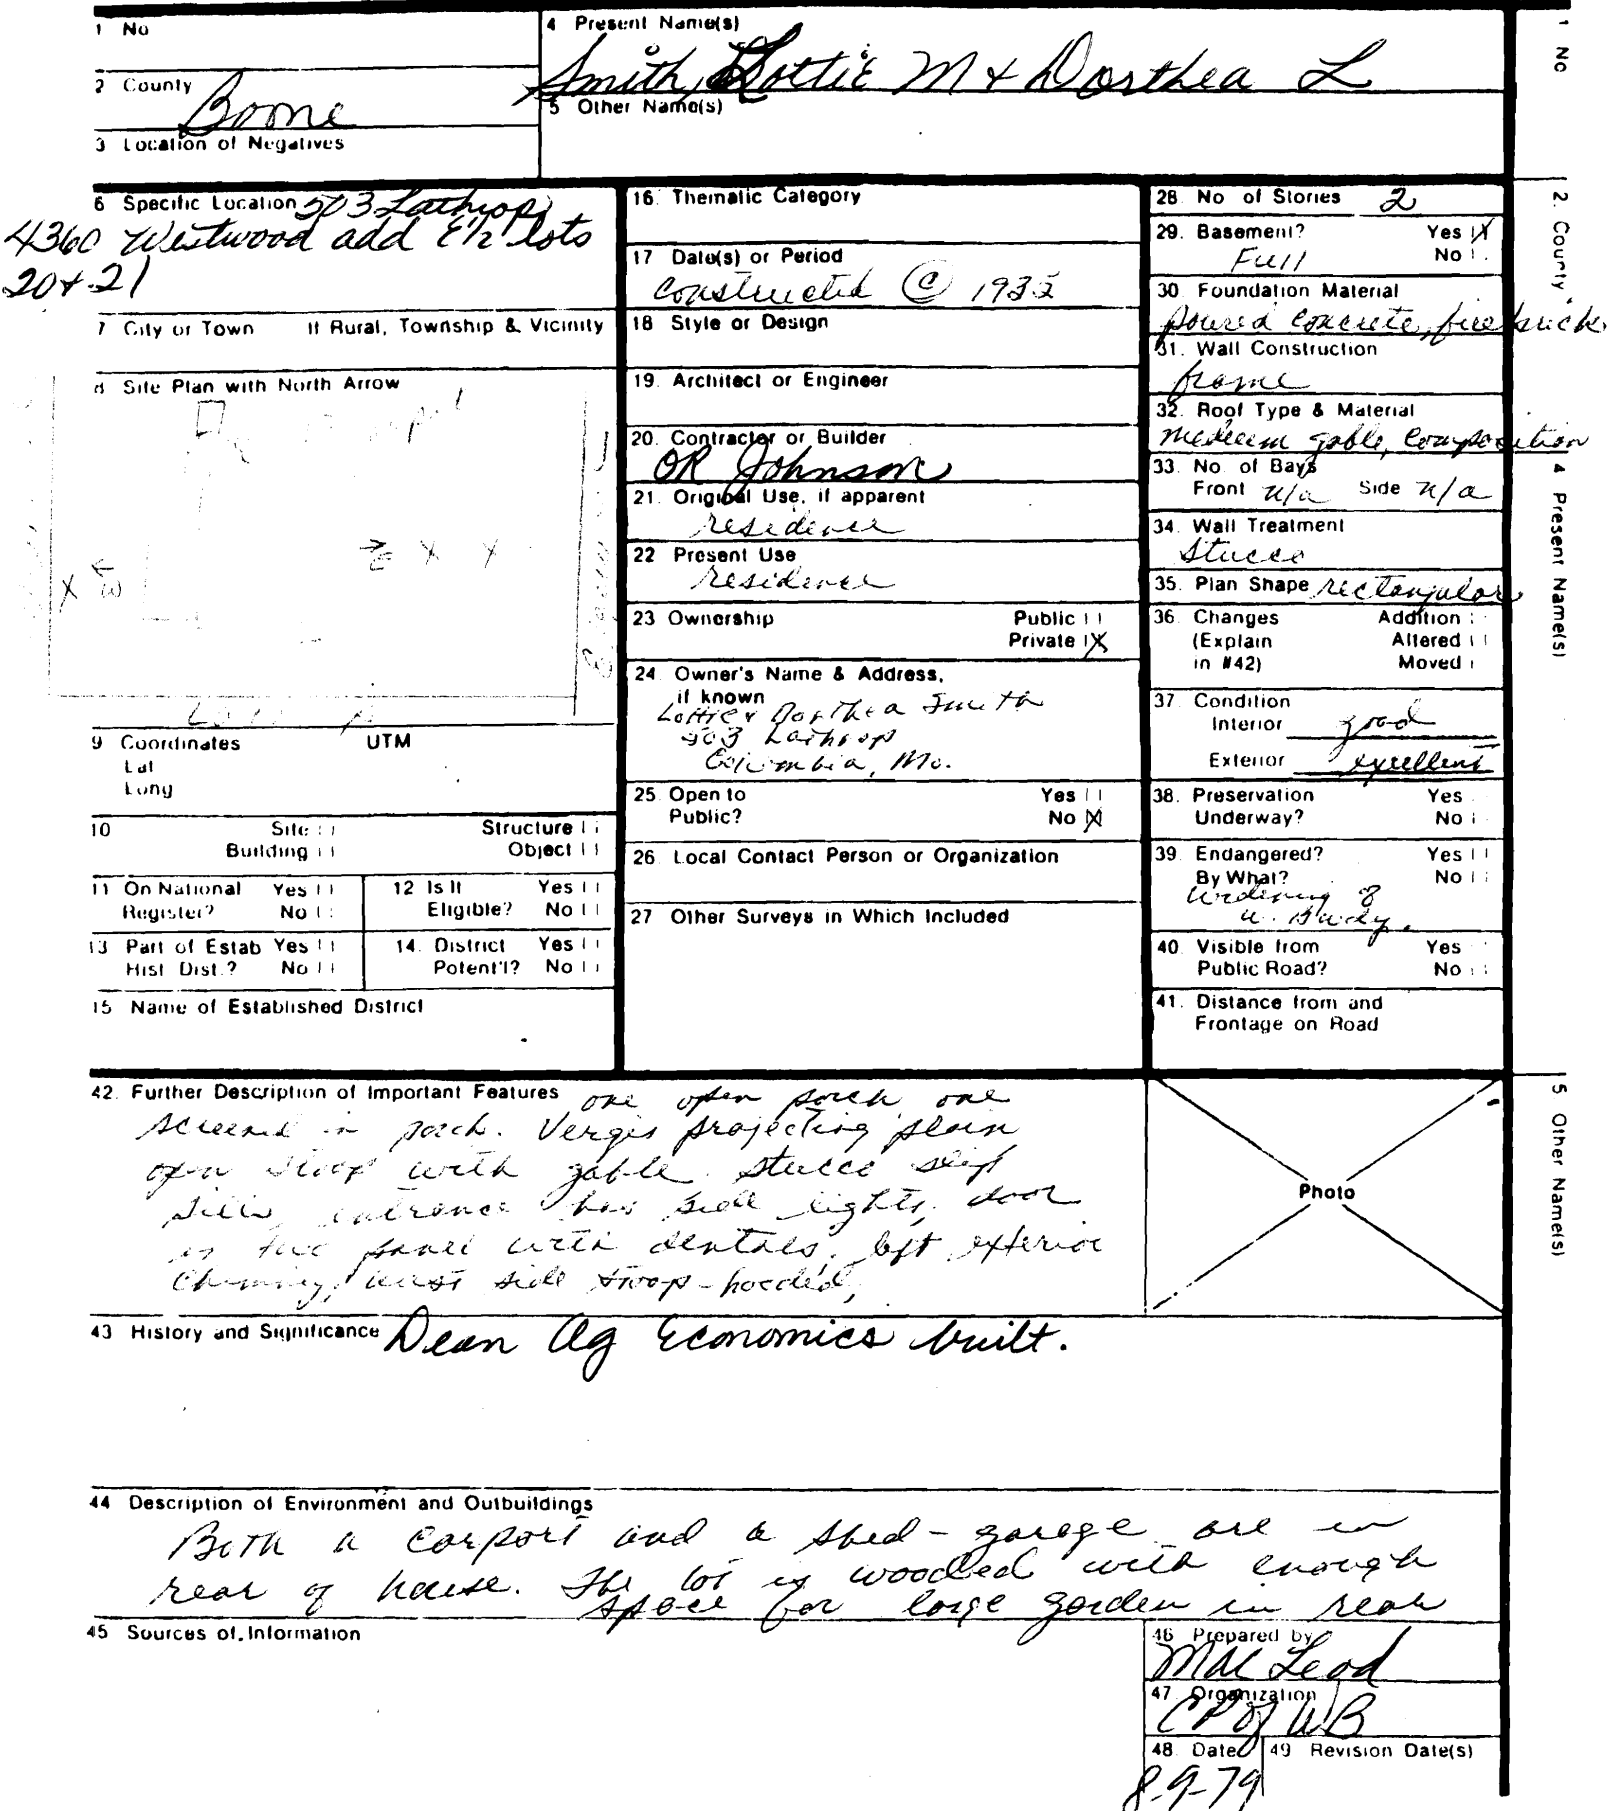 1 No
4 Present Name(s)
Smith, Lottie M + Dorthea L
2 County
Boone
5 Other Name(s)
3 Location of Negatives
6 Specific Location 503 Lathrop
4360 Westwood add E 1/2 lots
20 + 21
7 City or Town If Rural, Township & Vicinity
8 Site Plan with North Arrow
9 Coordinates UTM
Lat
Long
10 Site Structure
Building Object
11 On National Register? Yes No
12 Is It Eligible? Yes No
13 Part of Estab Hist. Dist.? Yes No
14. District Potent'l? Yes No
15 Name of Established District
16. Thematic Category
17 Date(s) or Period
constructed © 1935
18 Style or Design
19. Architect or Engineer
20. Contractor or Builder
OR Johnson
21. Original Use, if apparent
residence
22 Present Use
residence
23 Ownership Public
Private X
24. Owner's Name & Address,
if known
Lottie & Dorthea Smith
503 Lathrop
Columbia, Mo.
25. Open to Yes
Public? No X
26. Local Contact Person or Organization
27 Other Surveys in Which Included
28. No of Stories 2
29. Basement? Yes X
Full No
30. Foundation Material
poured concrete, fire brick
31. Wall Construction
frame
32. Roof Type & Material
medium gable, composition
33. No. of Bays
Front n/a Side n/a
34. Wall Treatment
stucco
35. Plan Shape rectangular
36. Changes Addition
(Explain Altered
in #42) Moved
37. Condition
Interior good
Exterior excellent
38. Preservation Yes
Underway? No
39. Endangered? Yes
By What? No
widening of
w. Bwdy.
40. Visible from Yes
Public Road? No
41. Distance from and
Frontage on Road
42. Further Description of Important Features one open porch, one
screened in porch. Verges projecting plain
open stoop with gable. stucco slip
sills, entrance has side lights, door
is two panel with dentals, left exterior
chimney, west side stoop-hooded,
Photo
43 History and Significance Dean Ag Economics built.
44 Description of Environment and Outbuildings
Both a carport and a shed-garage are in
rear of house. The lot is wooded with enough
space for large garden in rear
45 Sources of Information
46 Prepared by
MacLeod
47 Organization
CP of WB
48. Date
8-9-79
49 Revision Date(s)
1 No
2. County
4 Present Name(s)
5 Other Name(s)